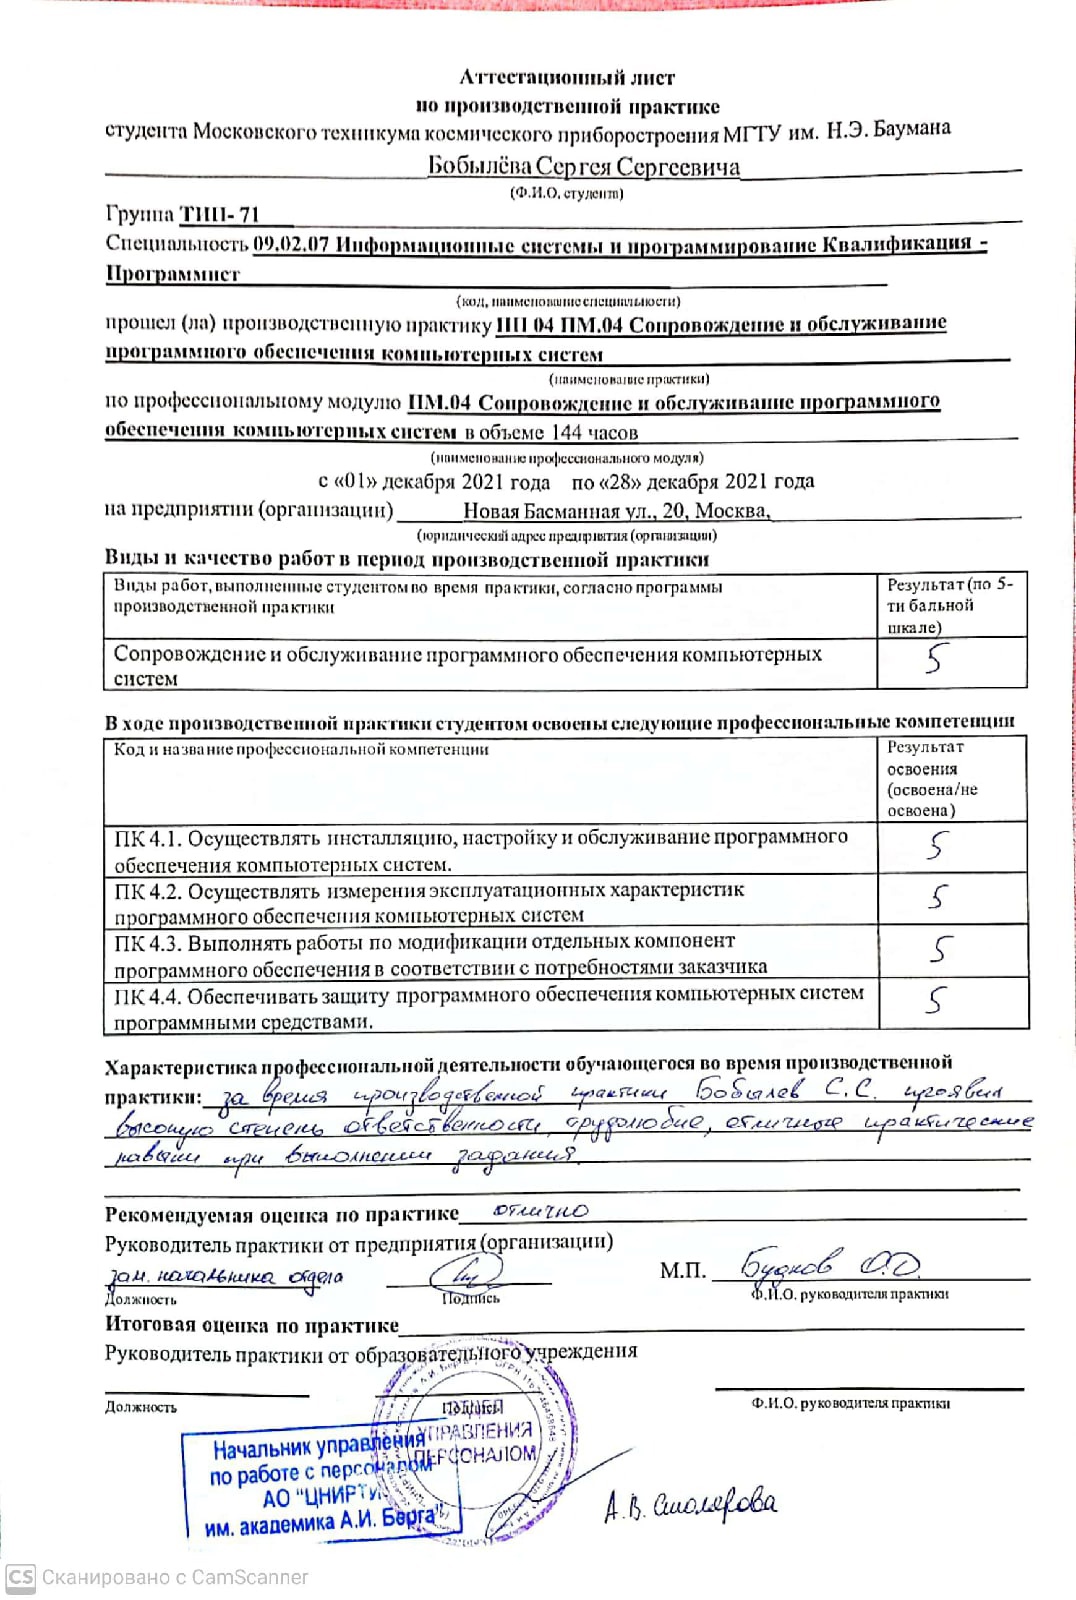 Аттестационный лист
по производственной практике
студента Московского техникума космического приборостроения МГТУ им. Н.Э. Баумана
Бобылёва Сергея Сергеевича
(Ф.И.О. студента)
Группа ТИП-71
Специальность 09.02.07 Информационные системы и программирование Квалификация -
Программист
(код, наименование специальности)
прошел (ла) производственную практику ПП 04 ПМ.04 Сопровождение и обслуживание
программного обеспечения компьютерных систем
(наименование практики)
по профессиональному модулю ПМ.04 Сопровождение и обслуживание программного
обеспечения компьютерных систем в объеме 144 часов
(наименование профессионального модуля)
с «01» декабря 2021 года по «28» декабря 2021 года
на предприятии (организации) Новая Басманная ул., 20, Москва,
(юридический адрес предприятия (организации)
Виды и качество работ в период производственной практики
Виды работ, выполненные студентом во время практики, согласно программы
производственной практики
Результат (по 5-
ти бальной
шкале)
Сопровождение и обслуживание программного обеспечения компьютерных
систем
5
В ходе производственной практики студентом освоены следующие профессиональные компетенции
Код и название профессиональной компетенции
Результат
освоения
(освоена/не
освоена)
ПК 4.1. Осуществлять инсталляцию, настройку и обслуживание программного
обеспечения компьютерных систем.
5
ПК 4.2. Осуществлять измерения эксплуатационных характеристик
программного обеспечения компьютерных систем
5
ПК 4.3. Выполнять работы по модификации отдельных компонент
программного обеспечения в соответствии с потребностями заказчика
5
ПК 4.4. Обеспечивать защиту программного обеспечения компьютерных систем
программными средствами.
5
Характеристика профессиональной деятельности обучающегося во время производственной
практики: за время производственной практики Бобылев С.С. проявил
высокую степень ответственности, трудолюбие, отличные практические
навыки при выполнении задания.
Рекомендуемая оценка по практике отлично
Руководитель практики от предприятия (организации)
зам. начальника отдела М.П. Будков О.О.
Должность Подпись Ф.И.О. руководителя практики
Итоговая оценка по практике
Руководитель практики от образовательного учреждения
Должность Подпись Ф.И.О. руководителя практики
ОТДЕЛ
УПРАВЛЕНИЯ
ПЕРСОНАЛОМ
Начальник управления
по работе с персоналом
АО "ЦНИРТИ
им. академика А.И. Берга"
А.В. Столярова
CS Сканировано с CamScanner